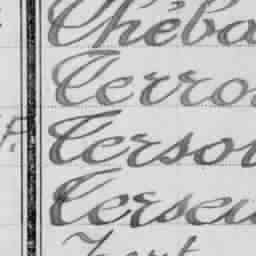 Théba
Terro
P. Terso
Terseu